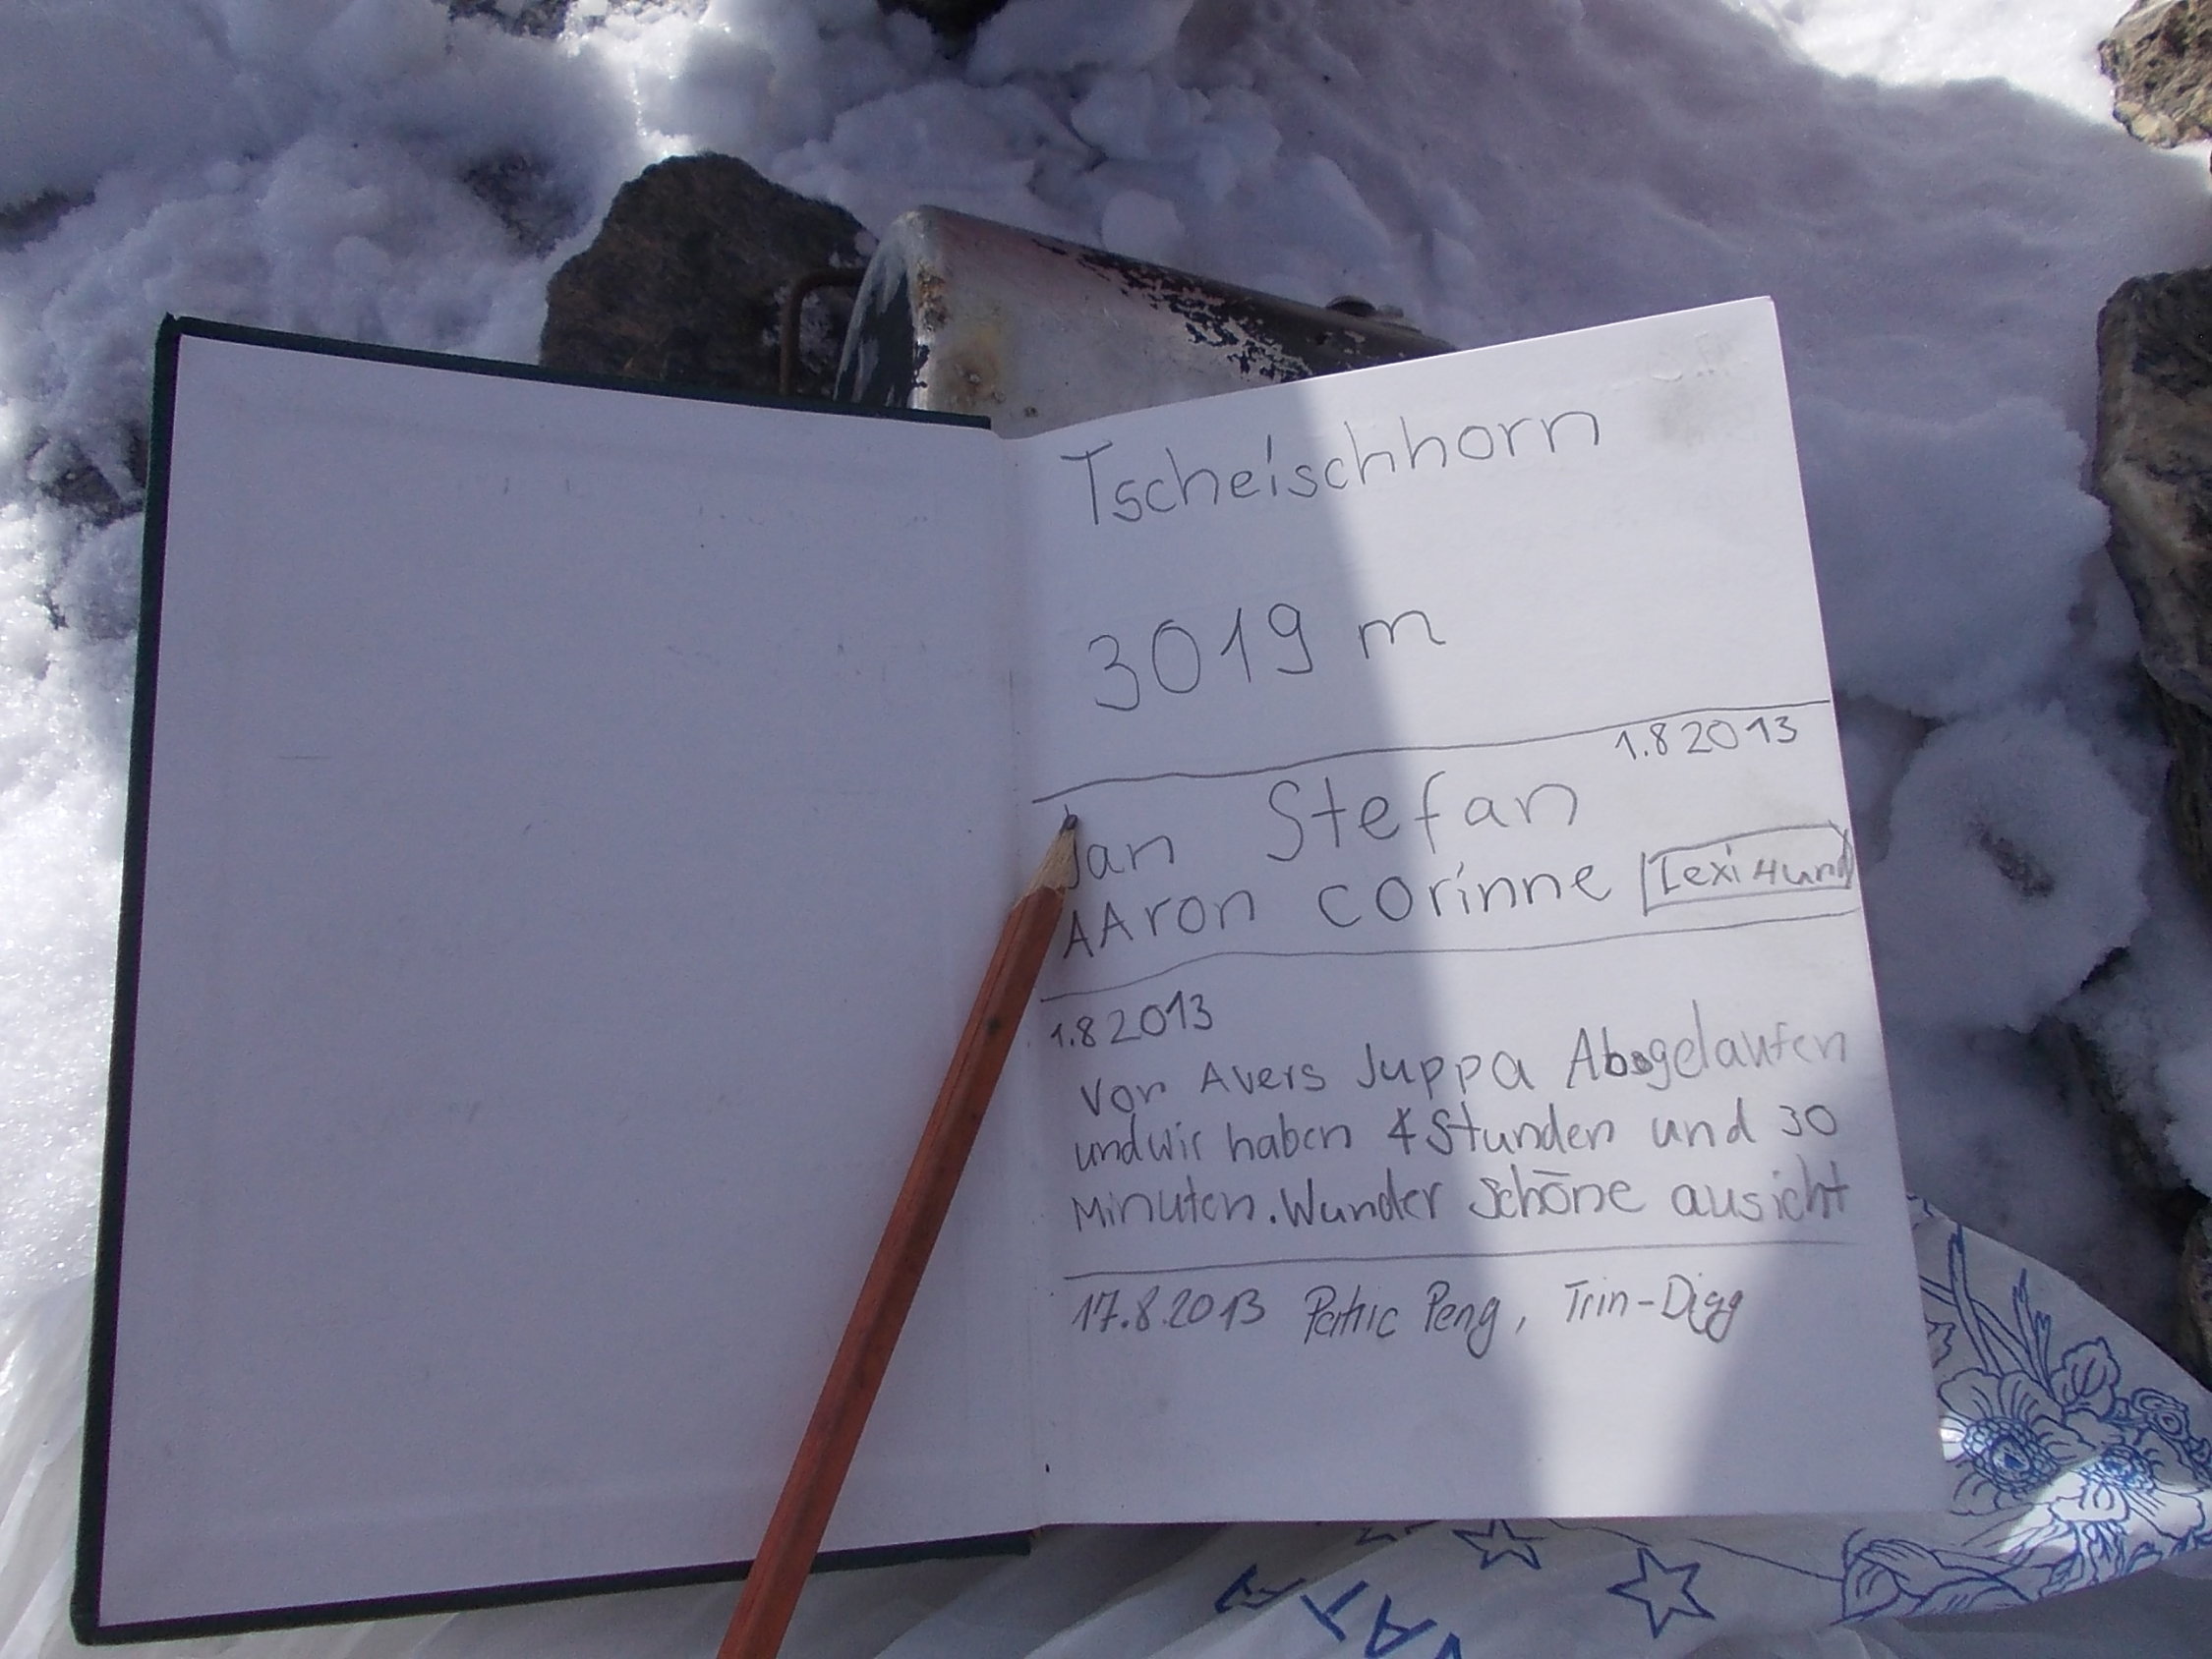 Tscheischhorn
3019 m
1.8 2013
Jan Stefan
AAron Corinne Lexi Hund
1.8 2013
Von Avers Juppa Abgelaufen
und wir haben 4 Stunden und 30
Minuten. Wunder schöne ausicht
17.8.2013 Patric Peng, Trin-Digg